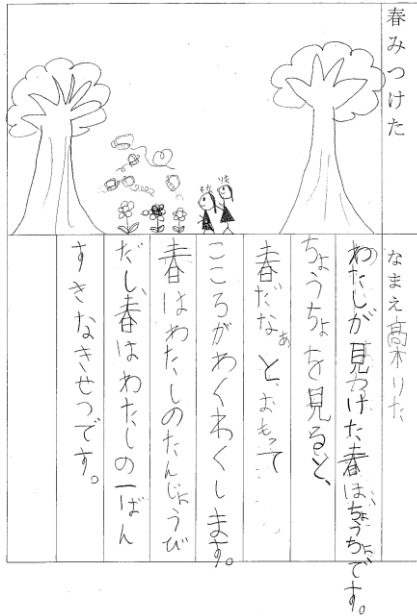 春みつけた
なまえ高木りた
わたしが見つけた春は、ちょうちょです。
ちょうちょを見ると、
春だなぁと、おもって
こころがわくわくします。
春はわたしのたんじょうび
だし、春はわたしの一ばん
すきなきせつです。